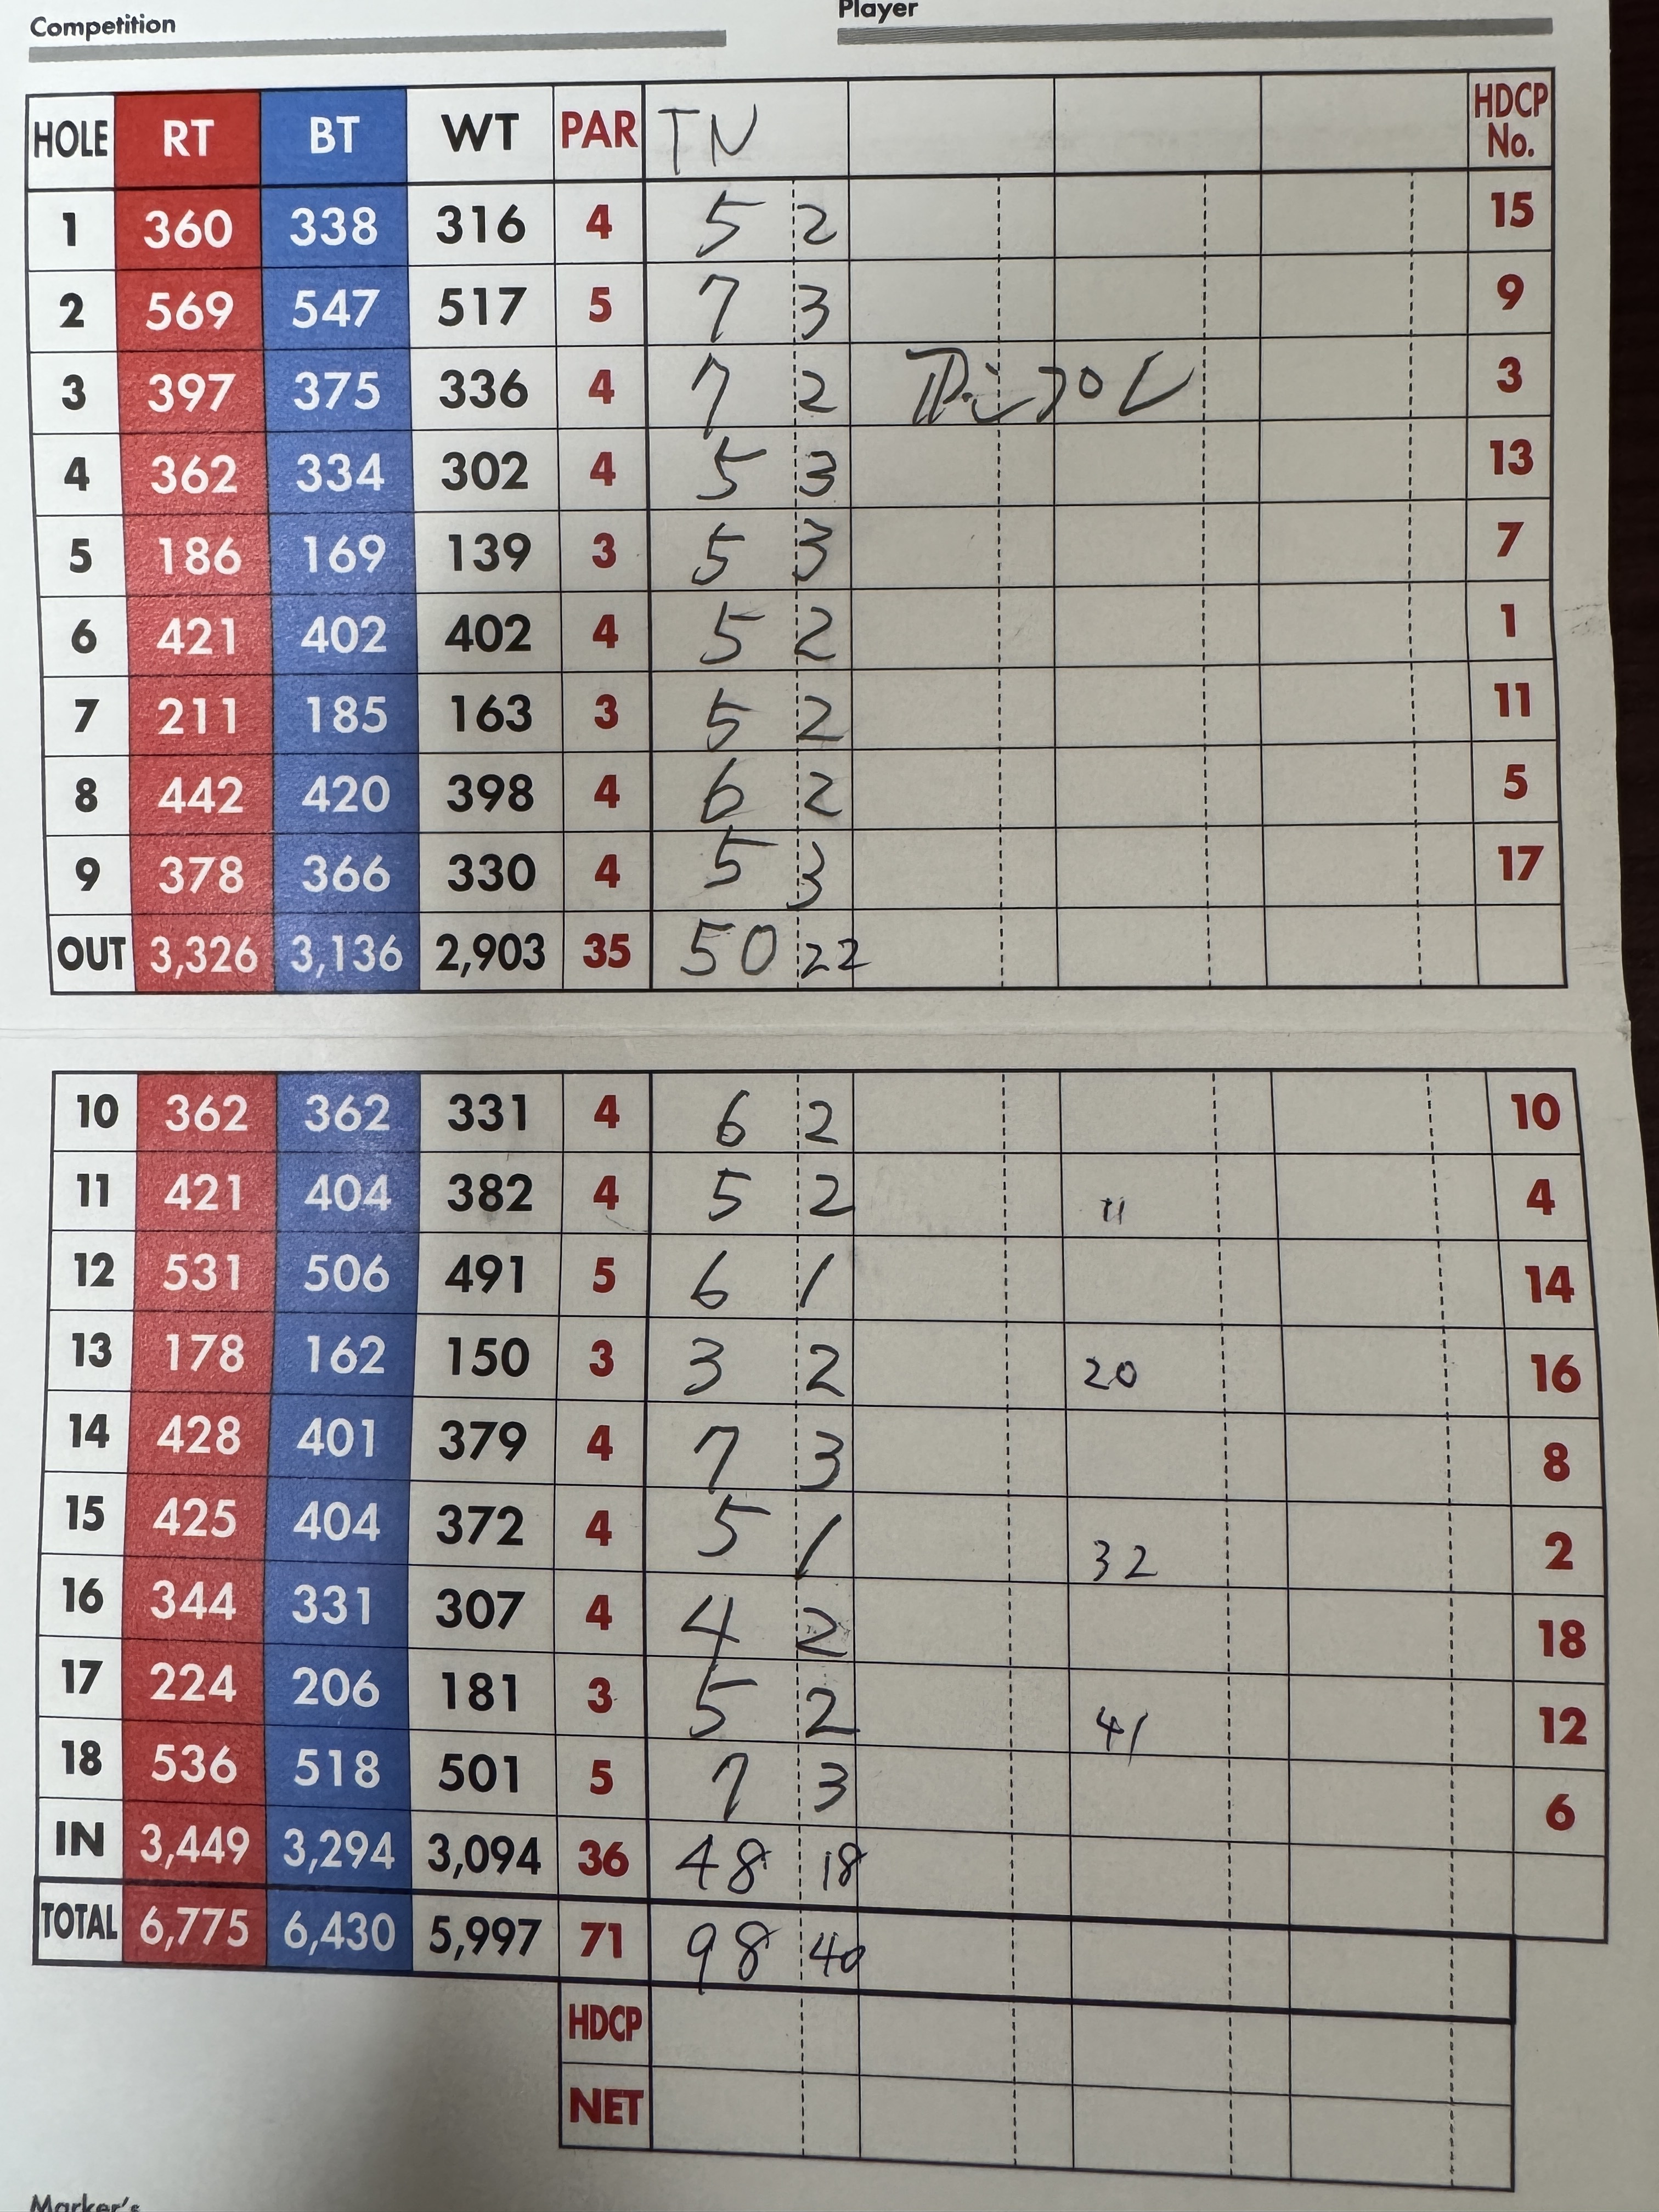 Competition Player
HOLE RT BT WT PAR TN HDCP No.
1 360 338 316 4 5 2 15
2 569 547 517 5 7 3 9
3 397 375 336 4 7 2 3
4 362 334 302 4 5 3 13
5 186 169 139 3 5 3 7
6 421 402 402 4 5 2 1
7 211 185 163 3 5 2 11
8 442 420 398 4 6 2 5
9 378 366 330 4 5 3 17
OUT 3,326 3,136 2,903 35 50 22
10 362 362 331 4 6 2 10
11 421 404 382 4 5 2 11 4
12 531 506 491 5 6 1 14
13 178 162 150 3 3 2 20 16
14 428 401 379 4 7 3 8
15 425 404 372 4 5 1 32 2
16 344 331 307 4 4 2 18
17 224 206 181 3 5 2 41 12
18 536 518 501 5 7 3 6
IN 3,449 3,294 3,094 36 48 18
TOTAL 6,775 6,430 5,997 71 98 40
HDCP
NET
Marker's